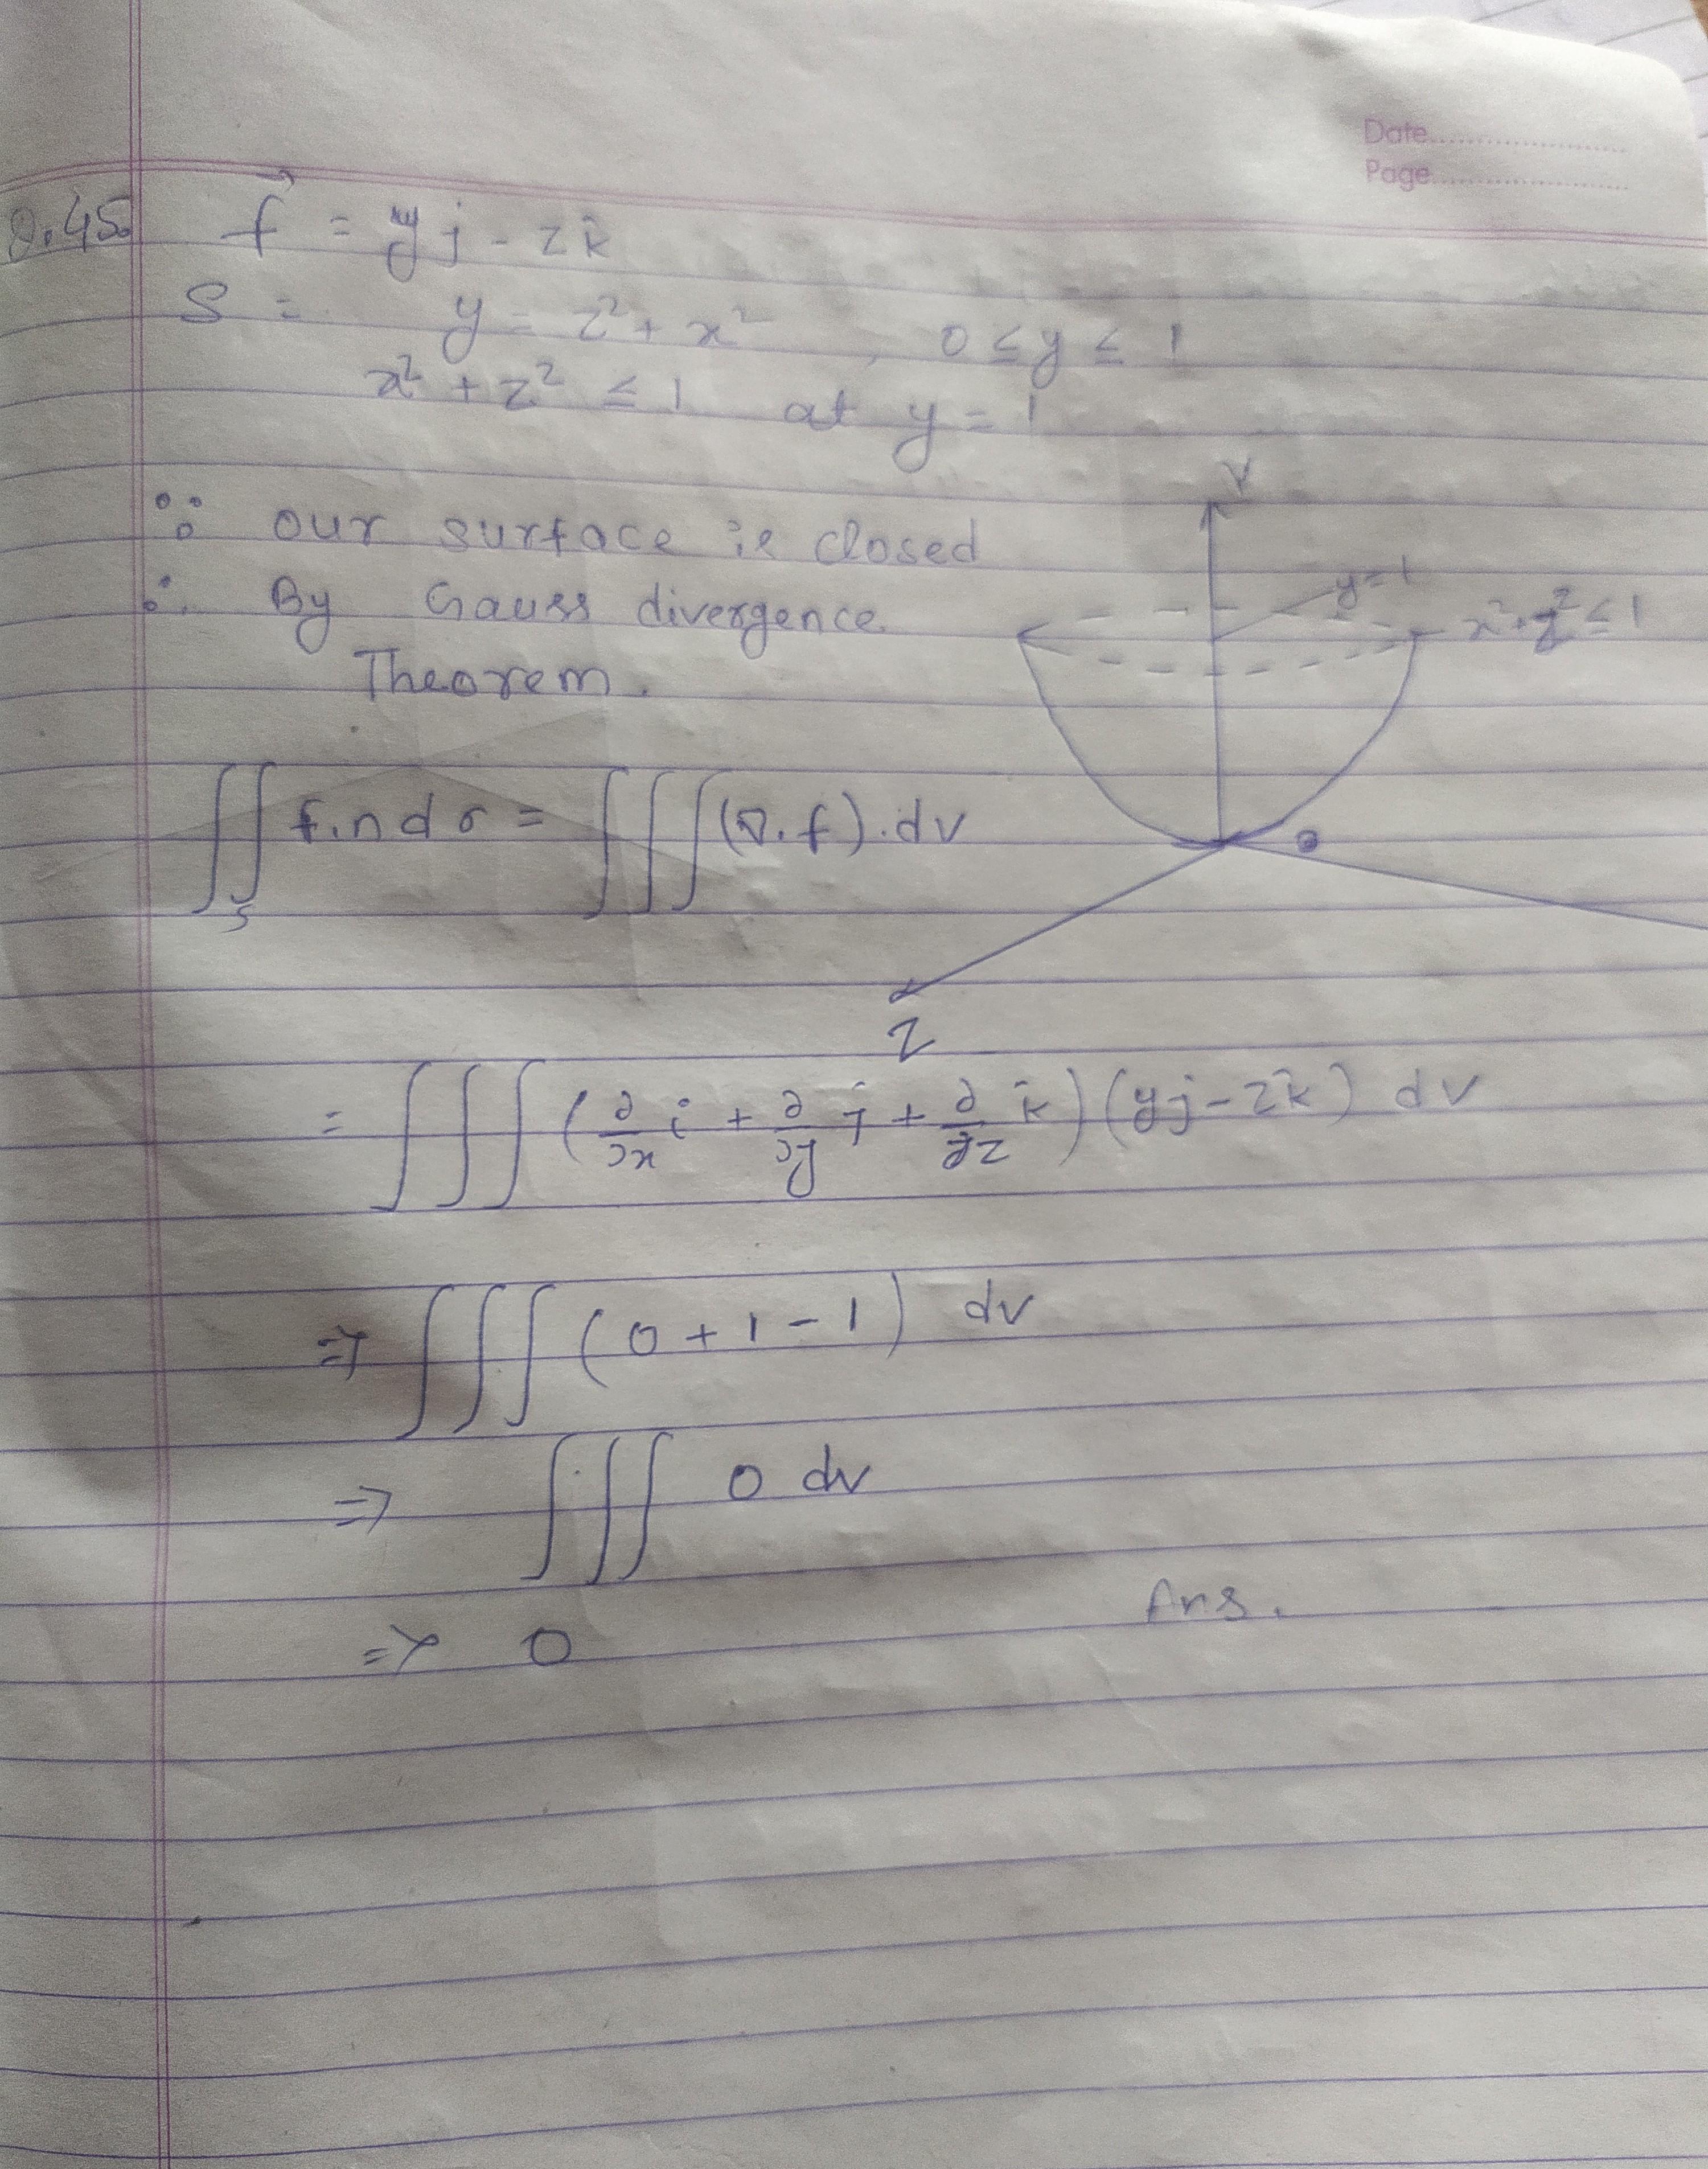 Date
Page
Q.45. f⃗ = yj - zk̂
S = y = z² + x² , 0 ≤ y ≤ 1
x² + z² ≤ 1 at y = 1
∵ our surface is closed
∴ By Gauss divergence
Theorem.
Y
y=1
x²+z² ≤ 1
∬_S f.n dσ = ∭ (∇.f).dv
Z
= ∭ (∂/∂x i + ∂/∂y j + ∂/∂z k̂)(yj - zk̂) dv
⇒ ∭ (0 + 1 - 1) dv
⇒ ∭ 0 dv
⇒ 0 Ans.